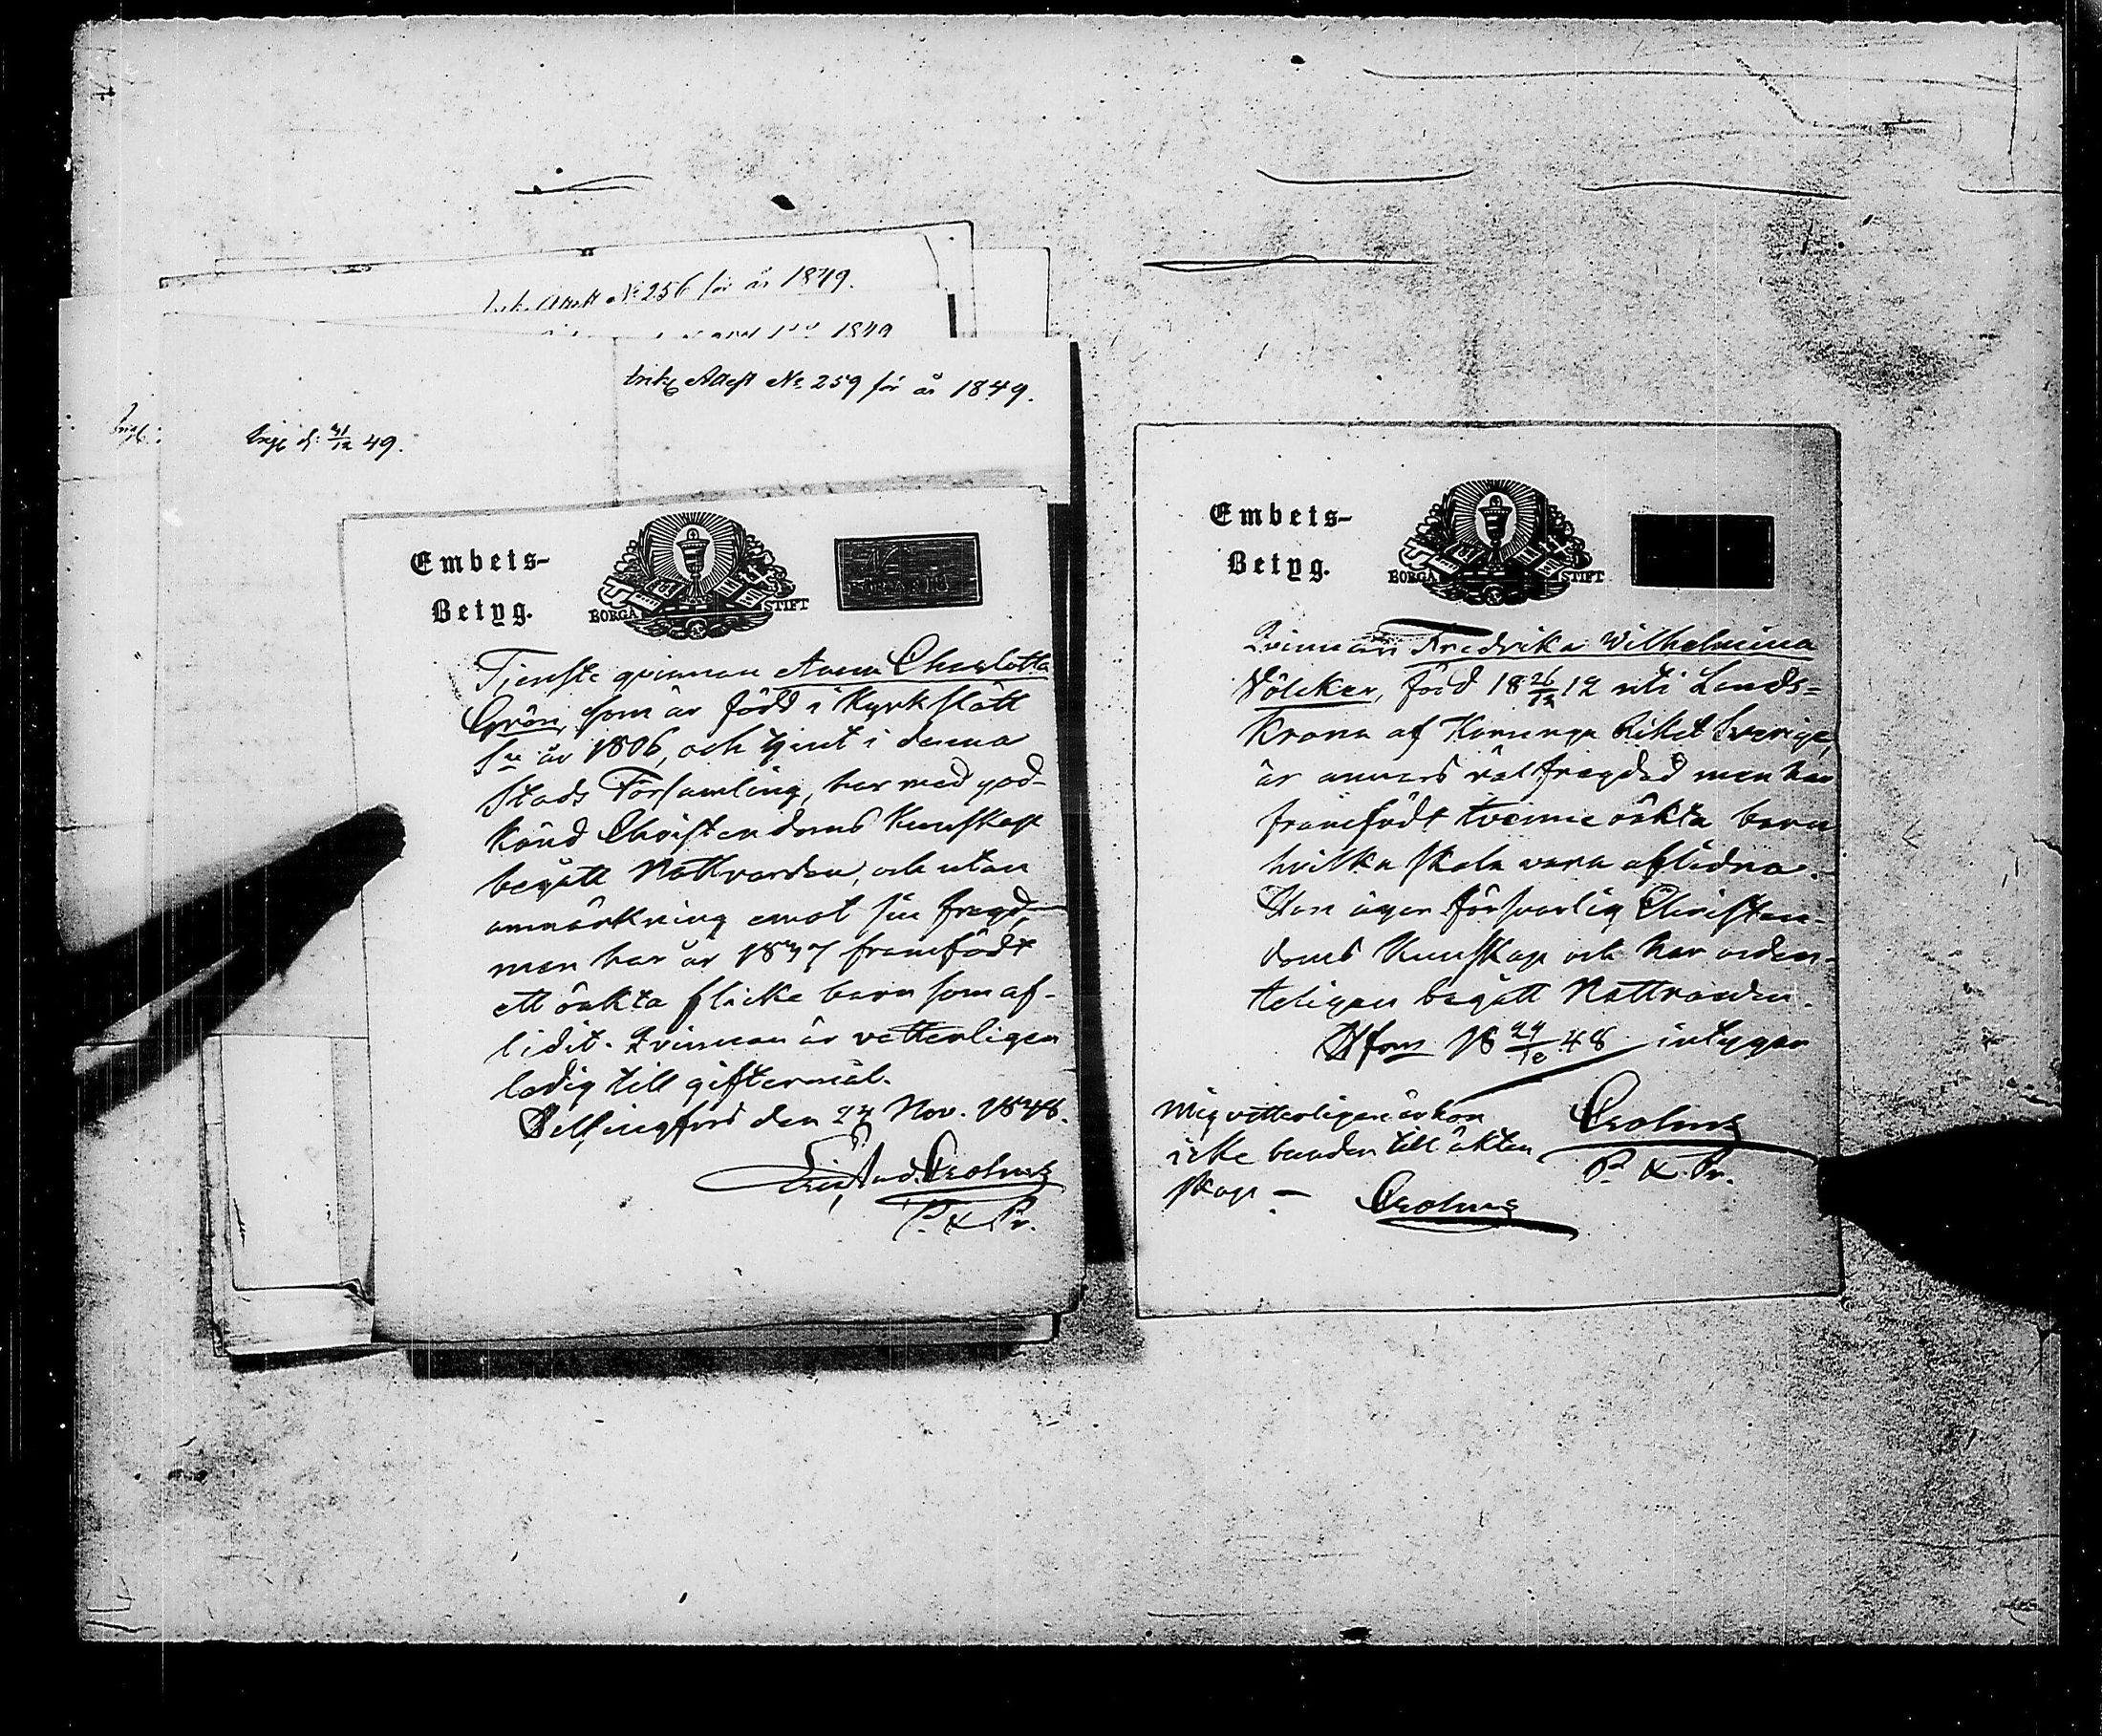 Attest No 256 för år 1849.
1849
Attest No 259 för år 1849.
d: 31/12 49.
Embets-
Betyg.
BORGÅ STIFT
Tjenste qvinnan Anna Charlotta
Grön, som är född i Kyrkslätt
Sn år 1806, och tjent i denna
Stads Församling, har med god-
känd Christendoms Kunskap
begått Nattvarden, och utan
anmärkning emot sin fregd,
men har år 1847 framfödt
ett oäkta flicke barn som af-
lidit. Qvinnan är vetterligen
ledig till giftermål.
Helsingfors den 24 Nov. 1848.
Crohns
P. & Pr.
Embets-
Betyg.
BORGÅ STIFT
Qvinnan Fredrika Wilhelmina
Völcker, född 18 26/12 12 uti Lands-
krona af Konunga Riket Sverige,
är annars välfregdad men har
framfödt tvenne oäkta barn
hvilka skola vara aflidna.
Hon äger försvarlig Christen-
doms Kunskap och har orden-
teligen begått Nattvarden.
H:fors 18 24/10 48 intygar
Crohns
P. & Pr.
Mig vetterligen är hon
icke bunden till äkten
skap –
Crohns